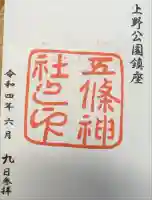 上野公園鎮座
五條神
社之印
令和四年六月
九日参拝